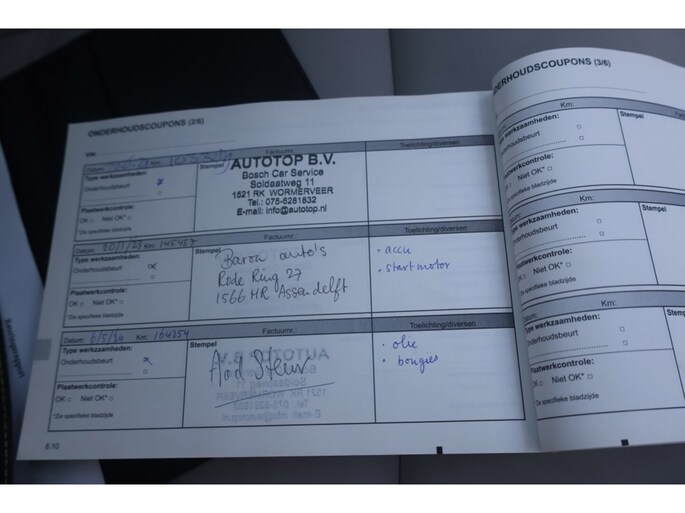 ONDERHOUDSCOUPONS (2/6)
VIN:
Datum: Km:
Factuurnr.:
Toelichting/diversen
Type werkzaamheden:
Onderhoudsbeurt x
Plaatwerkcontrole:
OK Niet OK*
*De specifieke bladzijde
Stempel
AUTOTOP B.V.
Bosch Car Service
Soldaatweg 11
1521 RK WORMERVEER
Tel.: 075-6281832
E-mail: info@autotop.nl
Datum: 20/1/23 Km: 145457
Factuurnr.:
Toelichting/diversen
Type werkzaamheden:
Onderhoudsbeurt x
Plaatwerkcontrole:
OK Niet OK*
*De specifieke bladzijde
Stempel
Baron auto's
Rode Ring 27
1566 HR Assendelft
• accu
• startmotor
Datum: 6/5/24 Km: 164254
Factuurnr.:
Toelichting/diversen
Type werkzaamheden:
Onderhoudsbeurt x
Plaatwerkcontrole:
OK Niet OK*
*De specifieke bladzijde
Stempel
• olie
• bougies
6.10
DERHOUDSCOUPONS (3/6)
Km:
Stempel
werkzaamheden:
houdsbeurt
werkcontrole:
Niet OK*
specifieke bladzijde
Km:
Stempel
werkzaamheden:
derhoudsbeurt
Plaatwerkcontrole:
OK Niet OK*
*De specifieke bladzijde
Km:
Stempel
Type werkzaamheden:
Onderhoudsbeurt
Plaatwerkcontrole:
OK Niet OK*
*De specifieke bladzijde